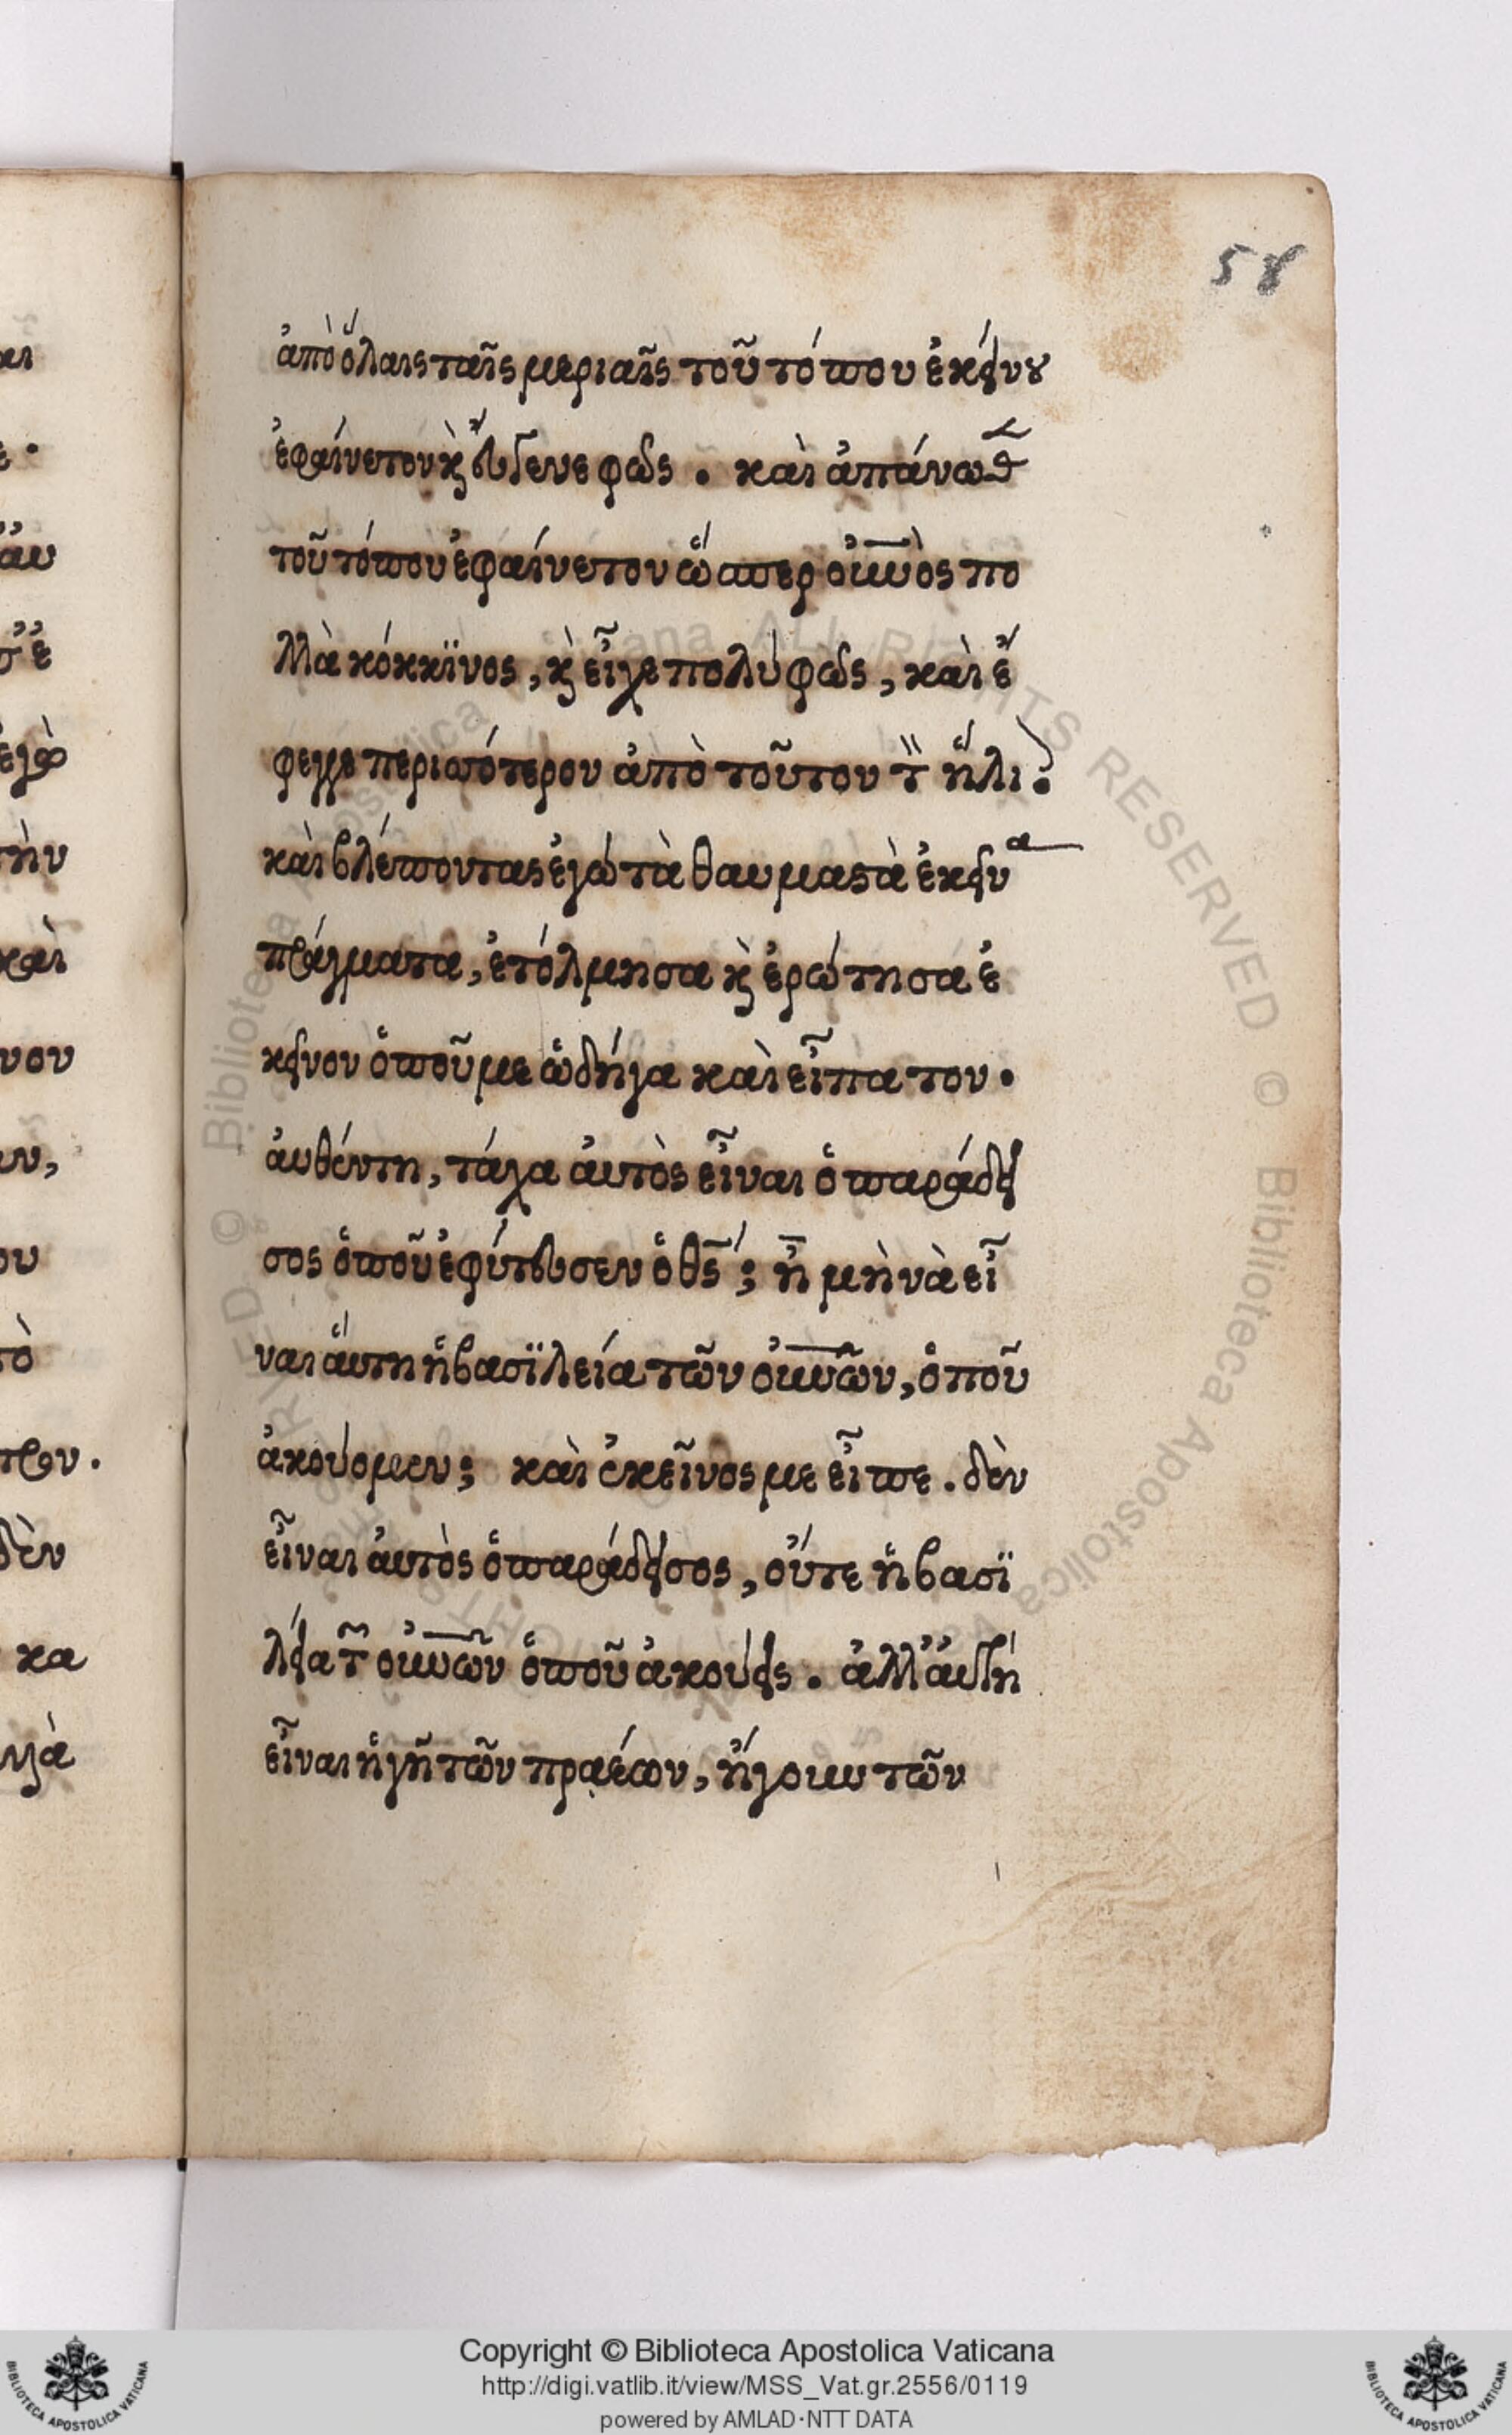 58
ἀπὸ ὅλαις ταῖς μεριαῖς τοῦ τόπου ἐκείνου
ἐφαίνετον κ̀ φῶς . καὶ ἀπάνω
τοῦ τόπου ἐφαίνετον ὥσπερ οὐνὸς πο
λλὰ κόκκϊνος , κ̀ εἶχε πολὺ φῶς , καὶ ἔ
φεγγε περισσότερον ἀπὸ τοῦτον τ̏ ἥλι .
καὶ βλέποντας ἐγὼ τὰ θαυμαστὰ ἐκεῖνα
πράγματα , ἐτόλμησα κ̀ ἐρώτησα ἐ
κεῖνον ὁποῦ με ὡδήγα καὶ εἶπα του .
ἀυθέντη , τάχα ἀυτὸς εἶναι ὁ παράδει
σος ὁποῦ ἐφύτευσεν ὁ θς̄ ; ἢ μὴ νὰ εἶ
ναι ἅυτη ἡ βασϊλεία τῶν οὐνῶν , ὁποῦ
ἀκούομεν ; καὶ ἐκεῖνος με εἶπε . δὲν
εἶναι ἀυτὸς ὁ παράδεισος , οὔτε ἡ βασϊ
λεία τ͂ οὐνῶν ὁποῦ ἀκούεις . ἀλλ' ἀυτὴ
εἶναι ἡ γῆ τῶν πραέων , ἤγουν τῶν
Copyright © Biblioteca Apostolica Vaticana
http://digi.vatlib.it/view/MSS_Vat.gr.2556/0119
powered by AMLAD·NTT DATA